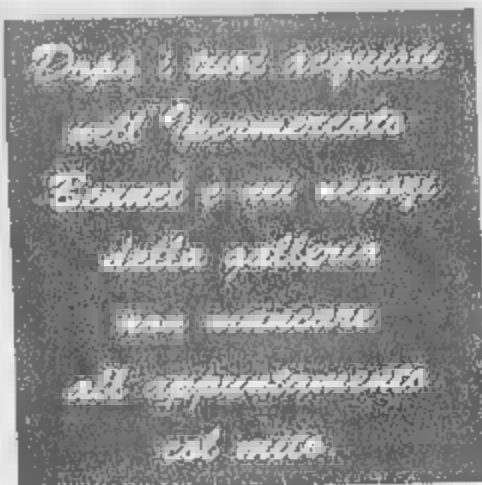 Dopo i tuoi acquisti
nell'Ipermercato
Bennet e nei negozi
della galleria
non mancare
all'appuntamento
col